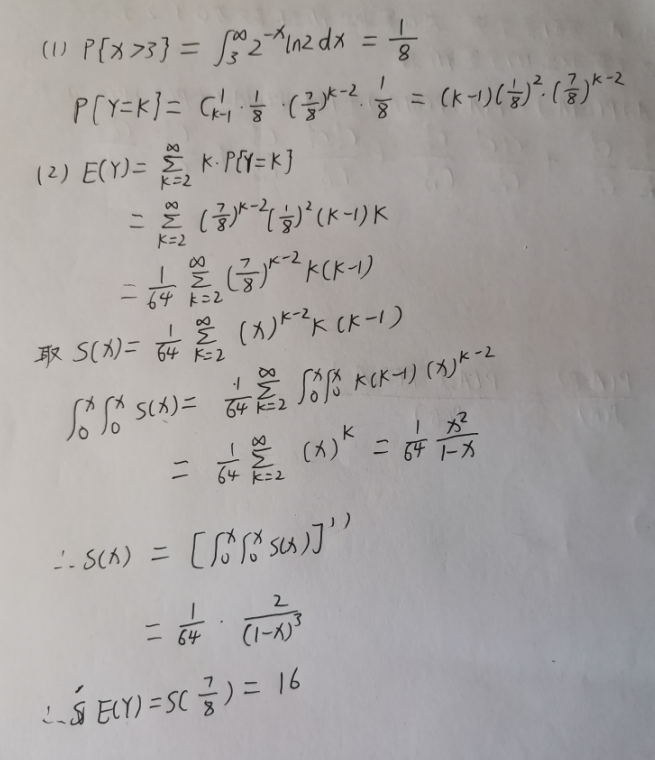 (1) P{X>3} = ∫₃^∞ 2^{-x} ln2 dx = 1/8
P{Y=K} = C_{K-1}^1 · 1/8 · (7/8)^{K-2} · 1/8 = (K-1)(1/8)^2 · (7/8)^{K-2}
(2) E(Y) = ∑_{K=2}^∞ K·P{Y=K}
= ∑_{K=2}^∞ (7/8)^{K-2} (1/8)^2 (K-1)K
= 1/64 ∑_{K=2}^∞ (7/8)^{K-2} K(K-1)
取 S(x) = 1/64 ∑_{K=2}^∞ (x)^{K-2} K(K-1)
∫₀^x ∫₀^x S(x) = 1/64 ∑_{K=2}^∞ ∫₀^x ∫₀^x K(K-1) (x)^{K-2}
= 1/64 ∑_{K=2}^∞ (x)^K = 1/64 x²/(1-x)
∴ S(x) = [∫₀^x ∫₀^x S(x)]''
= 1/64 · 2/(1-x)³
∴ E(Y) = S(7/8) = 16